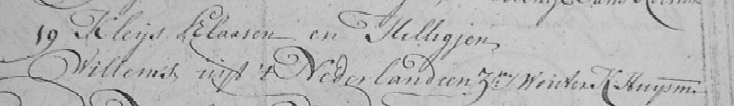 19 Kleijs Claasen en Hilligjen
Willems uijt 't Nederlandien Zn Wouter K Huysm: